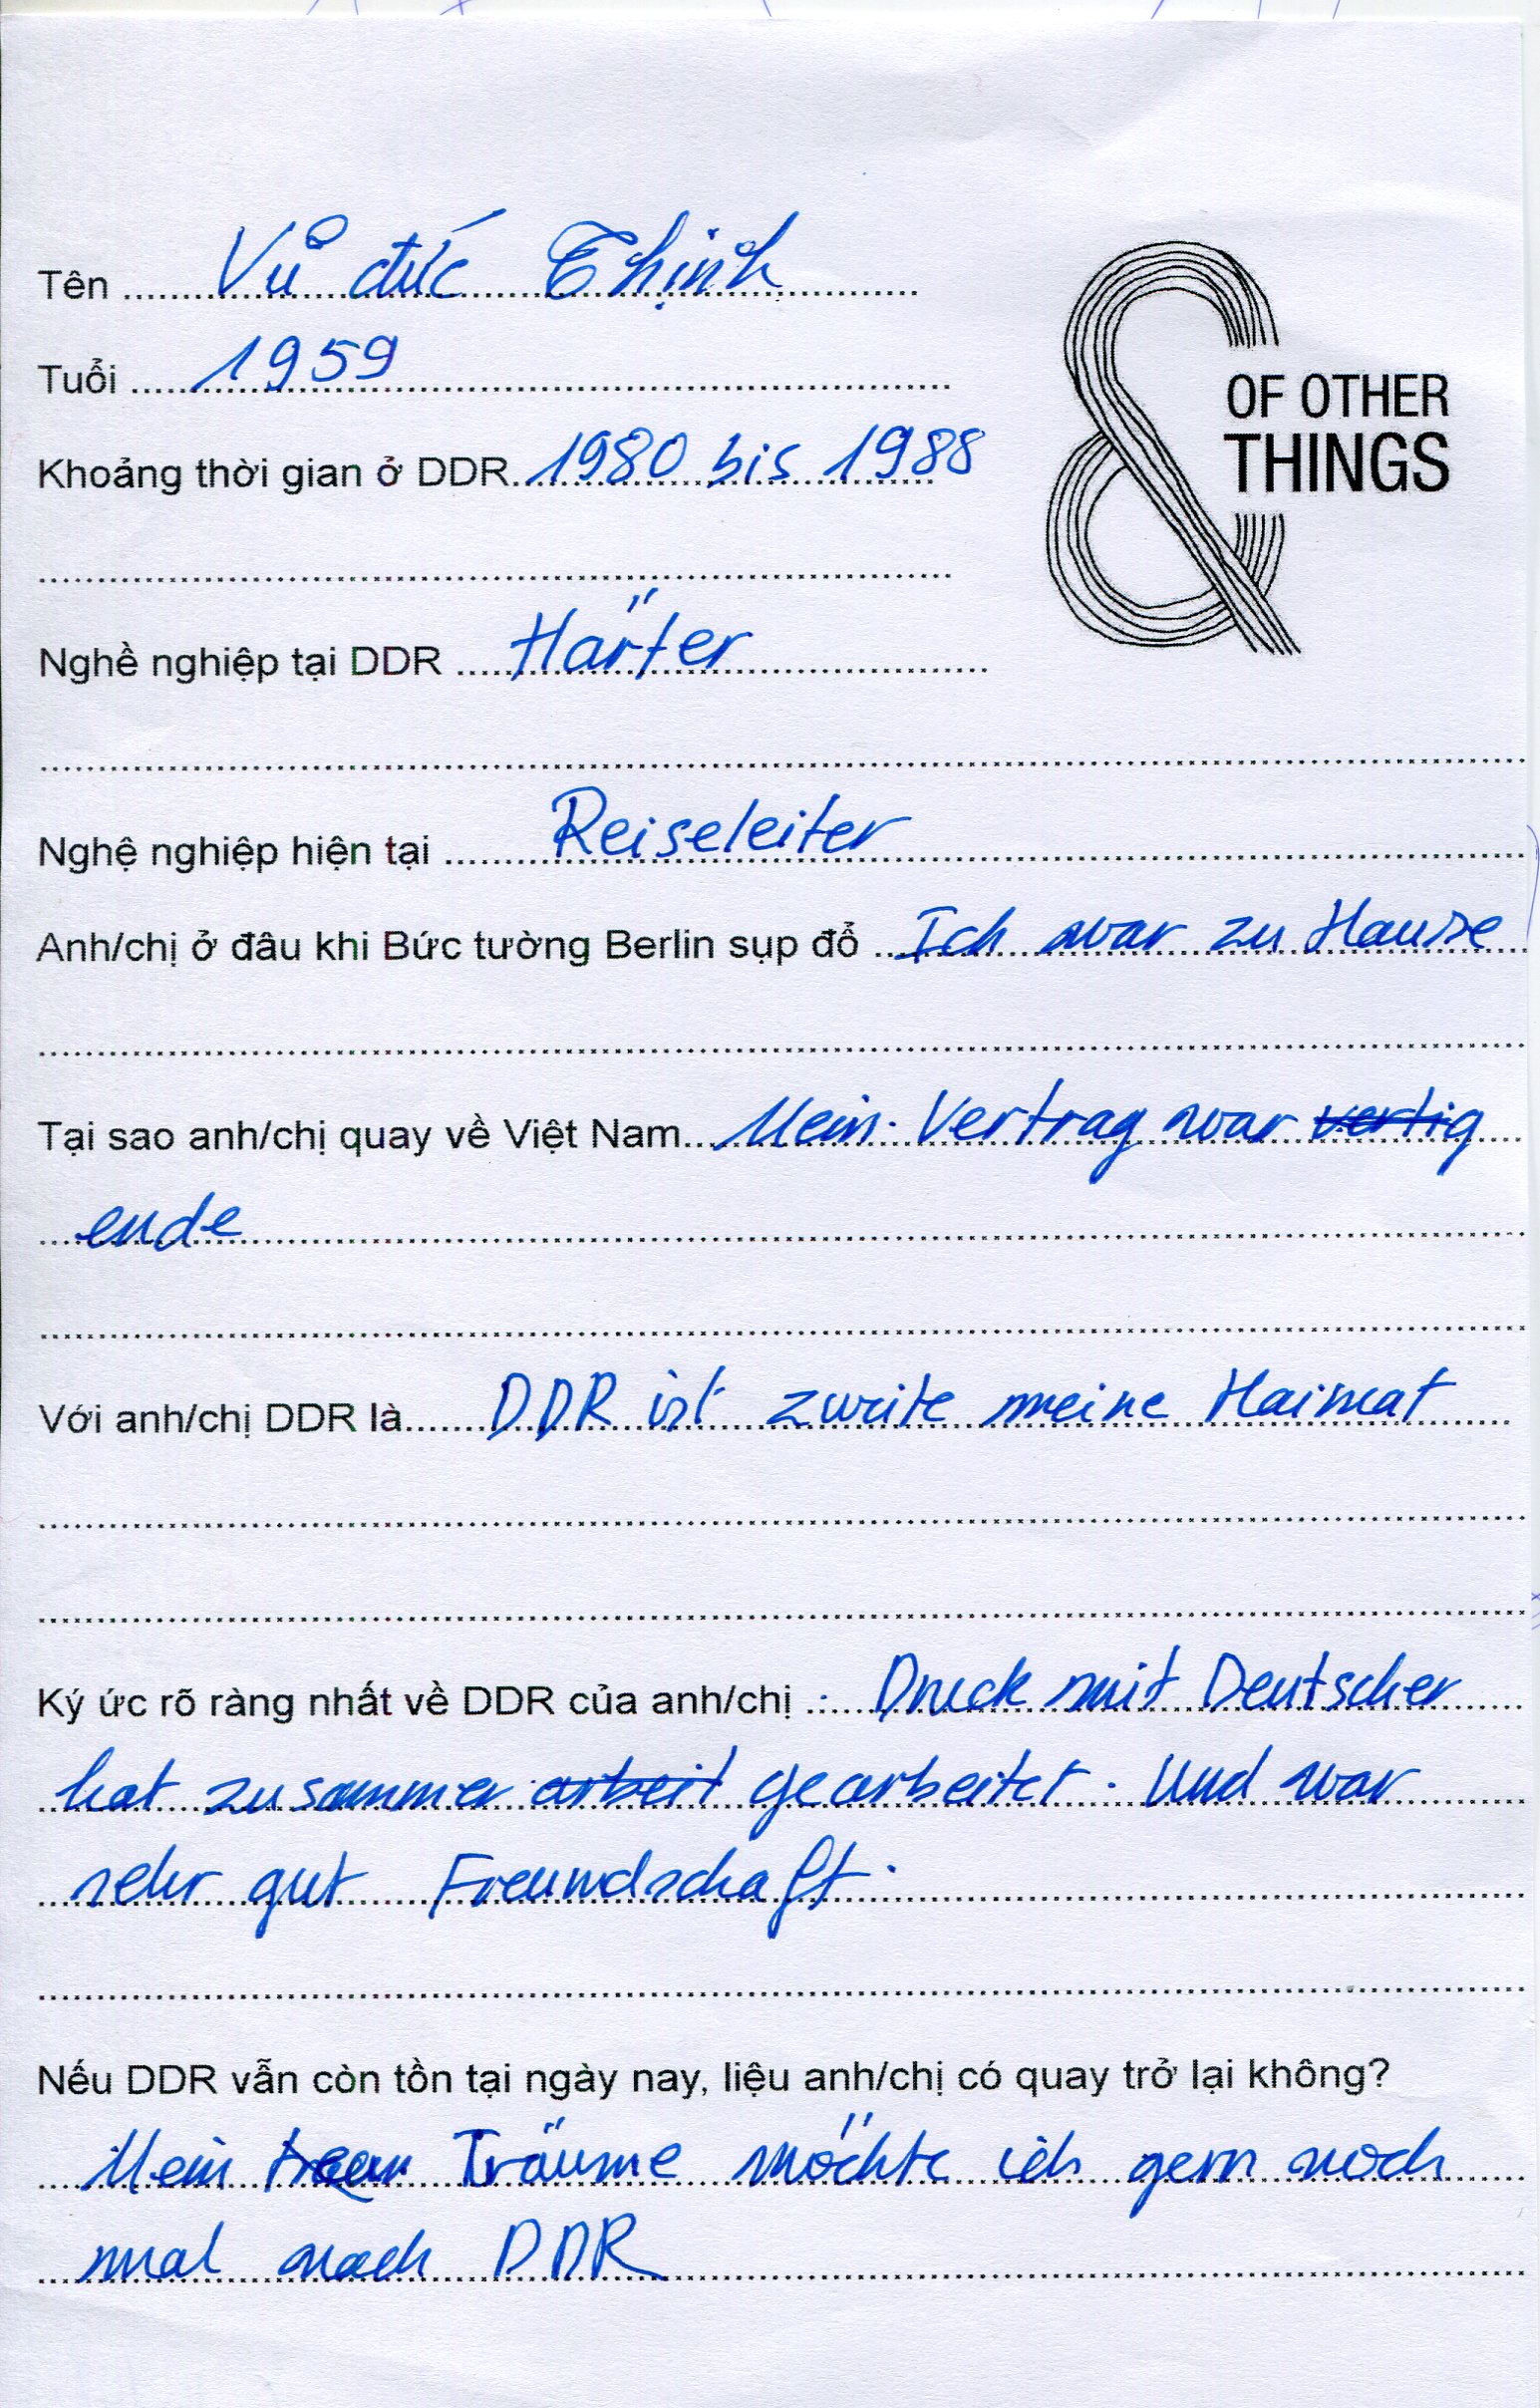 Tên Vũ đức Thịnh
Tuổi 1959
OF OTHER
THINGS
Khoảng thời gian ở DDR 1980 bis 1988
Nghề nghiệp tại DDR Härter
Nghệ nghiệp hiện tại Reiseleiter
Anh/chị ở đâu khi Bức tường Berlin sụp đổ Ich war zu Hause
Tại sao anh/chị quay về Việt Nam Mein Vertrag war vertig
ende
Với anh/chị DDR là DDR ist zweite meine Haimat
Ký ức rõ ràng nhất về DDR của anh/chị : Druck mit Deutscher
hat zusammer arbeit gearbeitet. Und war
sehr gut Freundschaft.
Nếu DDR vẫn còn tồn tại ngày nay, liệu anh/chị có quay trở lại không?
Mein Träume möchte ich gern noch
mal nach DDR